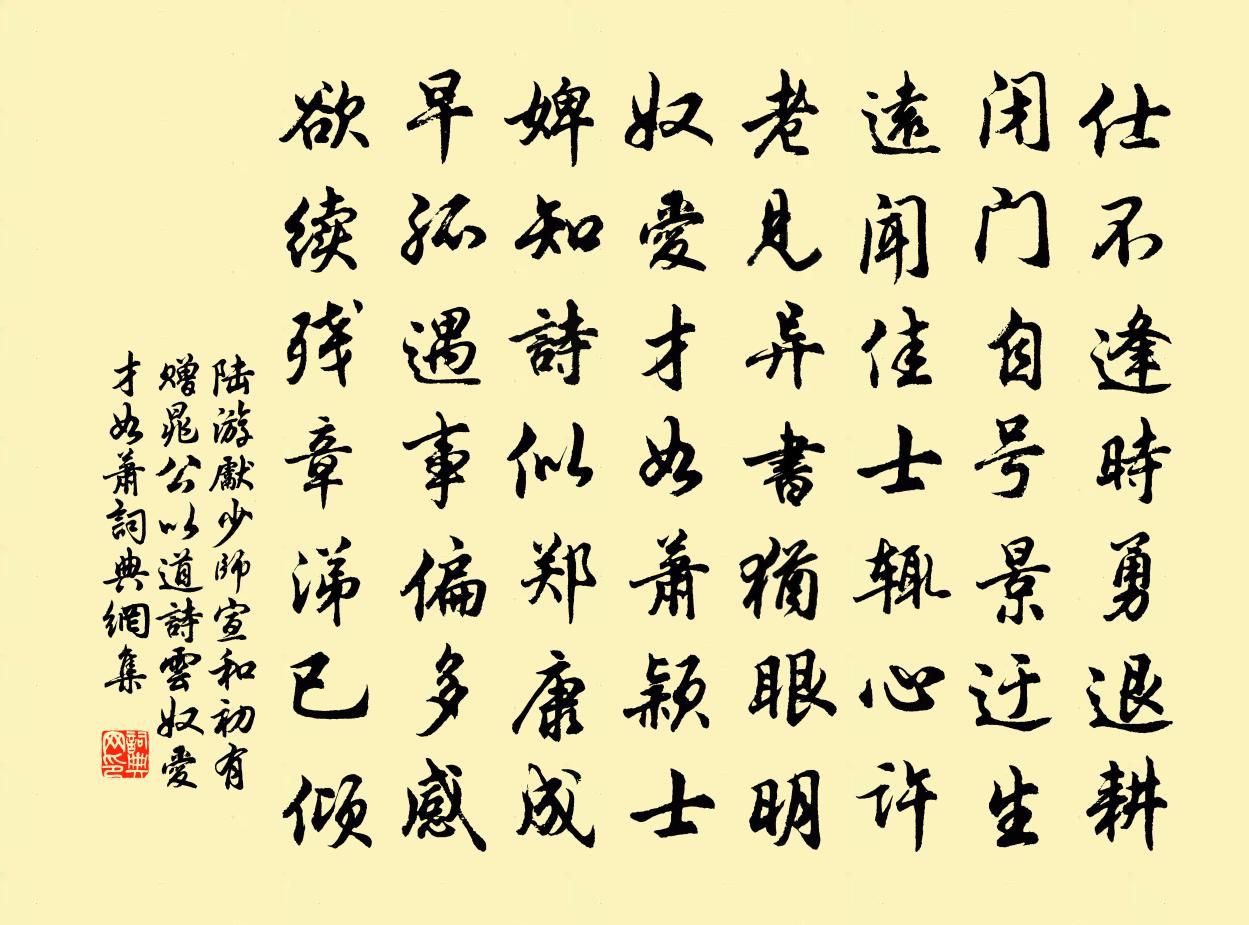 仕不逢時勇退耕
闭门自号景迂生
遠闻佳士辄心许
老见异書犹眼明
奴愛才如萧颖士
婢知詩似郑康成
早孤遇事偏多感
欲续残章涕已倾
陆游獻少師宣和初有
赠晁公以道詩雲奴愛
才如萧詞典網集
詞典
网印